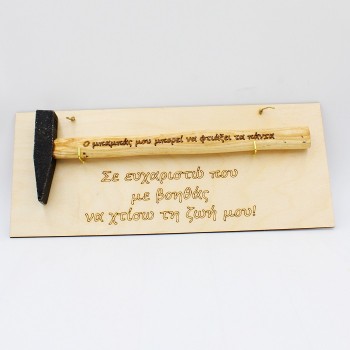 Ο μπαμπάς μου μπορεί να φτιάξει τα πάντα
Σε ευχαριστώ που
με βοηθάς
να χτίσω τη ζωή μου!